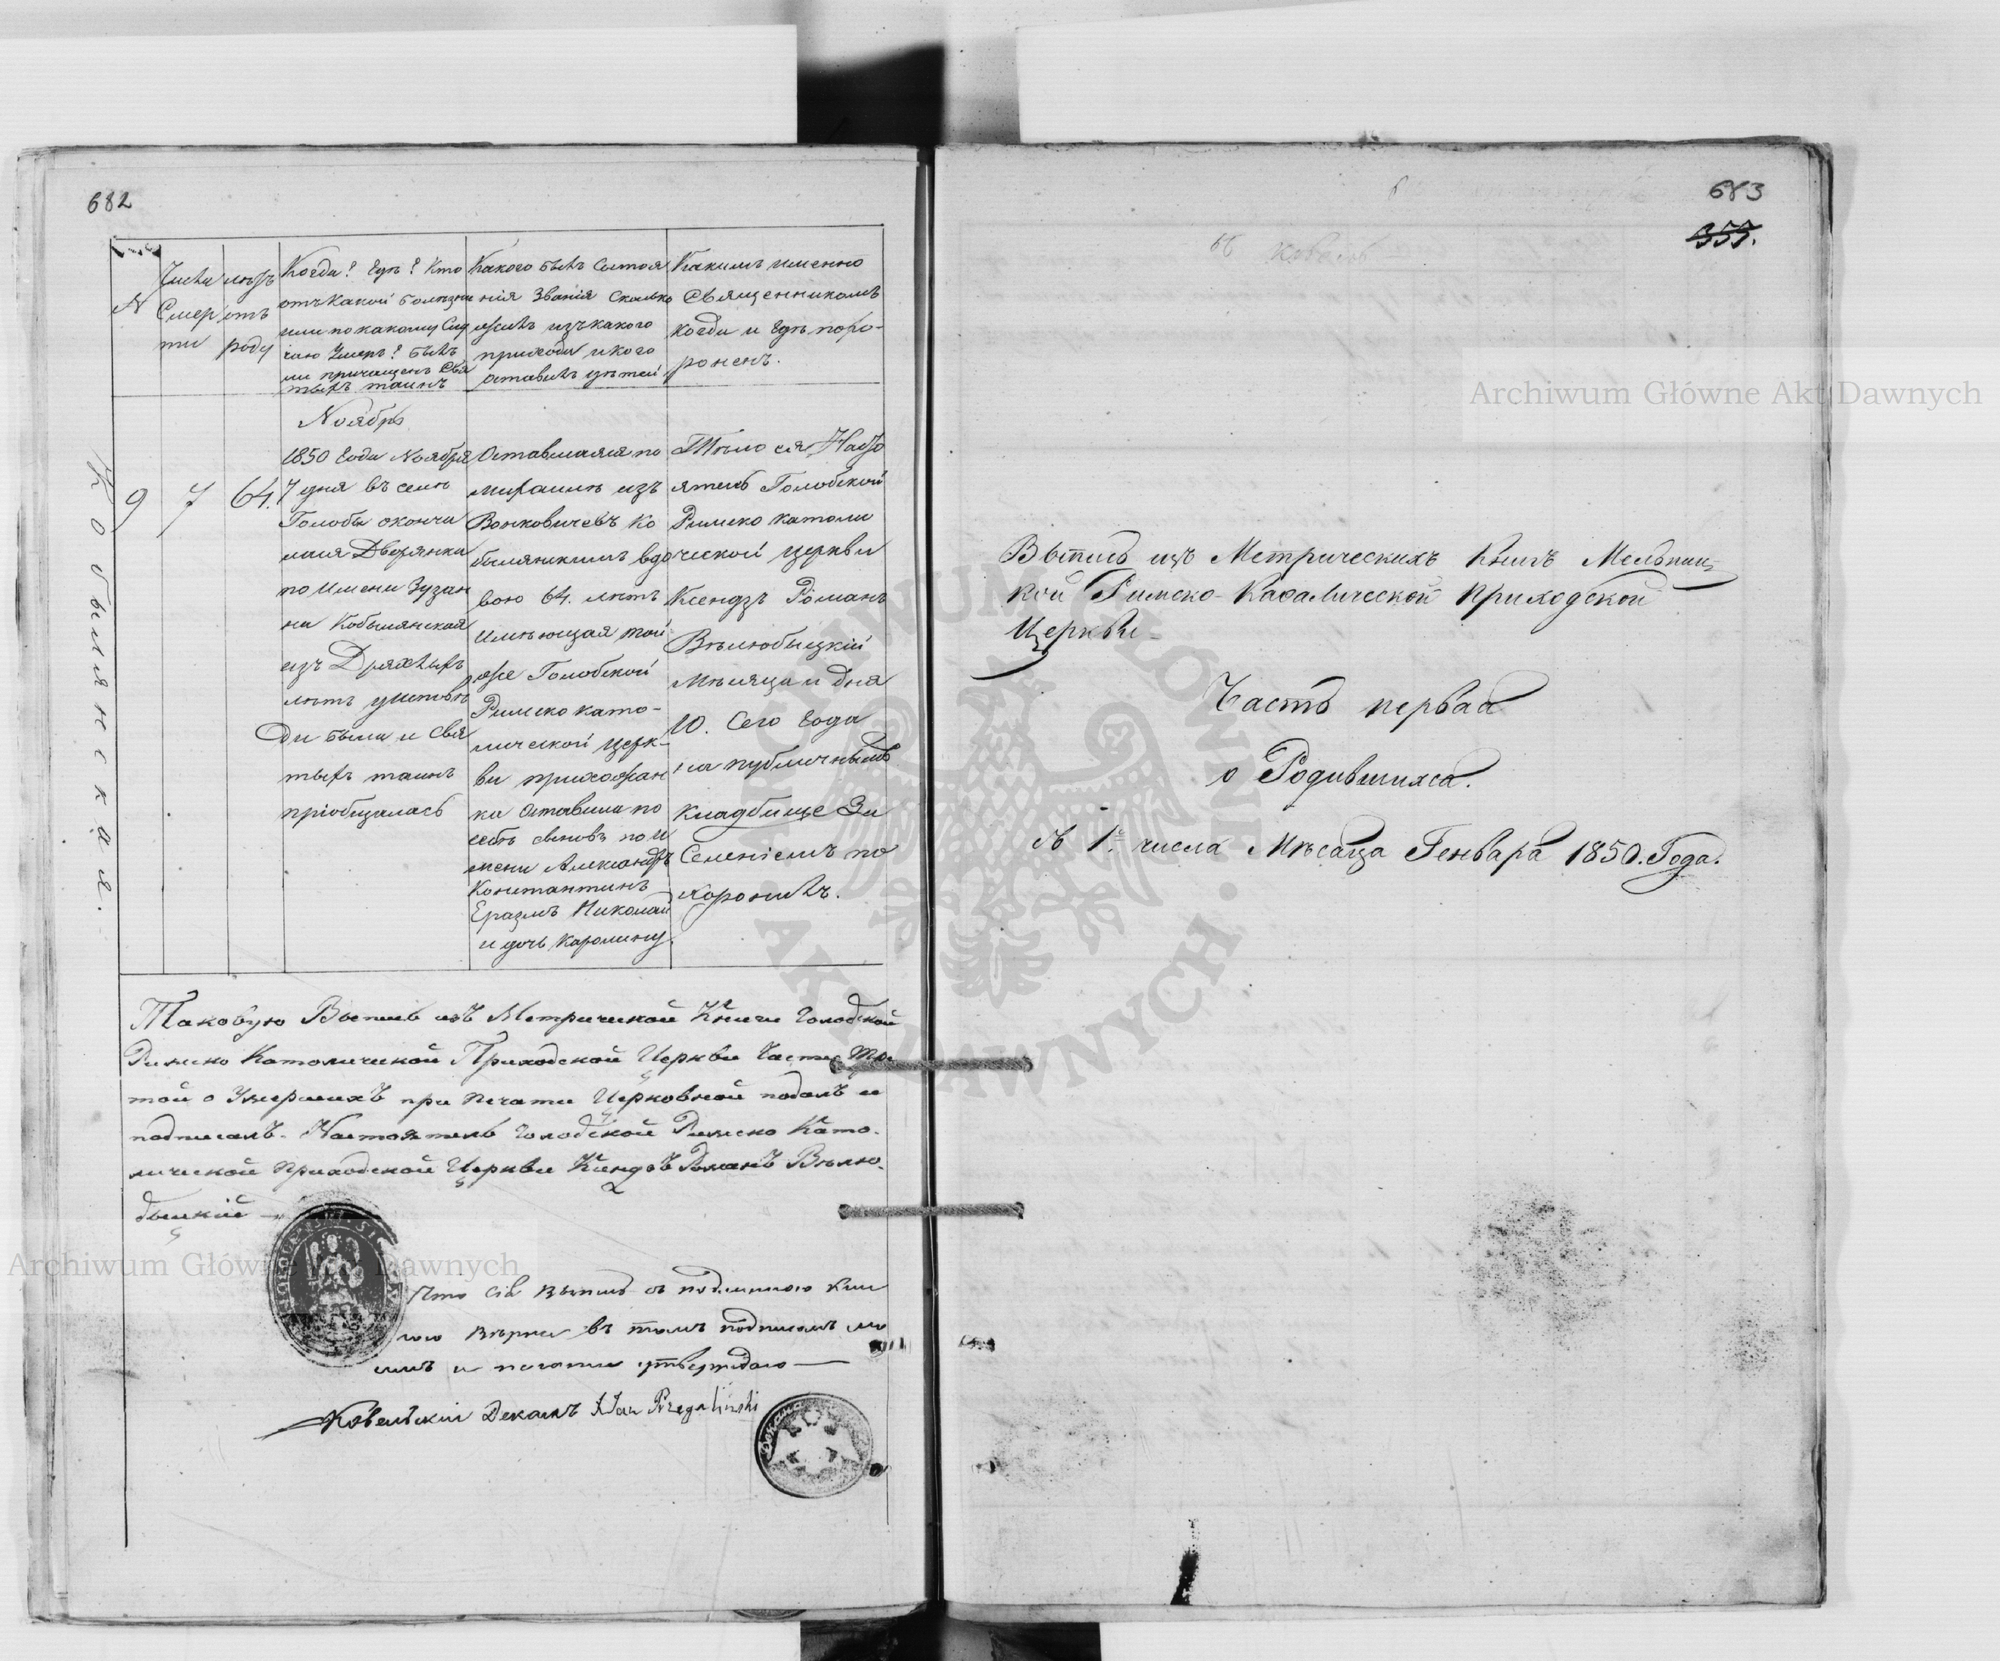 682
N
Числа
Смер
ти
лѣтъ
отъ
роду
Когда? Гдѣ? Кто
отъ какой болѣзни
или по какому слу
чаю умеръ? былъ
ли причащенъ Свя
тыхъ таинъ
Какого былъ состоя
нія званія сколько
жилъ изъ какого
прихода и кого
оставилъ дѣтей
Какимъ именно
Священникомъ
когда и гдѣ похо-
роненъ.
Кобылянская.
9
7
64.
Ноябрь
1850 года Ноября
7 дня въ селѣ
Голобы сконча
лася Дворянка
по имени Зузан
на Кобылянская
изъ Дряхлыхъ
лѣтъ
была и Свя
тыхъ таинъ
пріобщалась
Оставшаяся по
изъ
Вонковичевъ Ко
былянскимъ вдо
вою 64. лѣтъ
имѣющая той
же Голобской
Римско като-
лической церк-
ви прихожан
ка оставила по
себѣ сыновъ по и
мени Александръ
Константинъ
Еразмъ Николай
и дочь Каролину.
Тѣло ея Насто
ятель Голобской
Римско Католи
ческой церкви
Ксендзъ Романъ
Вѣлюбыцкій
Мѣсяца и дня
10. Сего года
на публичномъ
кладбище За
Селеніемъ по
хоронилъ.
Таковую Выпись изъ Метрической Книги Голобской
Римско Католической Приходской Церкви Части Тре
той о Умершихъ при печати Церковной подалъ и
подписалъ. Настоятель Голобской Римско Като-
лической Приходской Церкви Ксендзъ Романъ Вѣлю-
быцкій
Что сія выпись съ подлинною кни
гою вѣрна въ томъ подписомъ мо
имъ и печатью утверждаю
Ковельскій Деканъ X Jan Przegaliński
683
355.
Выпись изъ Метрическихъ Книгъ Мельниц
кой Римско-Каѳалической Приходской
Церкви-
Часть первая
о Родившихся.
съ 1го числа Мѣсяца Генваря 1850. Года.
Archiwum Główne Akt Dawnych
Archiwum Główne Akt Dawnych
ARCHIWUM GŁÓWNE AKT DAWNYCH